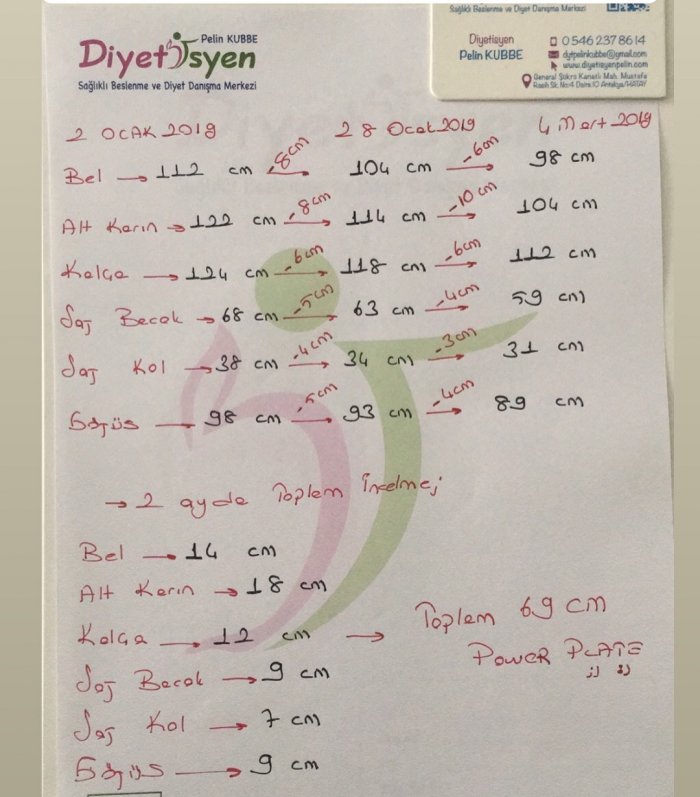 Pelin KUBBE
Diyetisyen
Sağlıklı Beslenme ve Diyet Danışma Merkezi
Sağlıklı Beslenme ve Diyet Danışma Merkezi
Diyetisyen
Pelin KUBBE
0 546 237 86 14
dytpelinkubbe@gmail.com
www.diyetisyenpelin.com
General Şükrü Kanatlı Mah. Mustafa
Rasih Sk. No:4 Daire:10 Antakya/HATAY
2 OCAK 2019 28 Ocak 2019 4 Mart 2019
Bel → 112 cm -8cm → 104 cm -6cm → 98 cm
Alt Karın → 122 cm -8cm → 114 cm -10 cm → 104 cm
Kalça → 124 cm -6cm → 118 cm -6cm → 112 cm
Sağ Bacak → 68 cm -5cm → 63 cm -4cm → 59 cm
Sağ Kol → 38 cm -4cm → 34 cm -3cm → 31 cm
Göğüs → 98 cm -5cm → 93 cm -4cm → 89 cm
→ 2 ayda Toplam İncelmej
Bel → 14 cm
Alt Karın → 18 cm
Kalça → 12 cm → Toplam 69 cm
POWER PLATE
Sağ Bacak → 9 cm
Sağ Kol → 7 cm
Göğüs → 9 cm